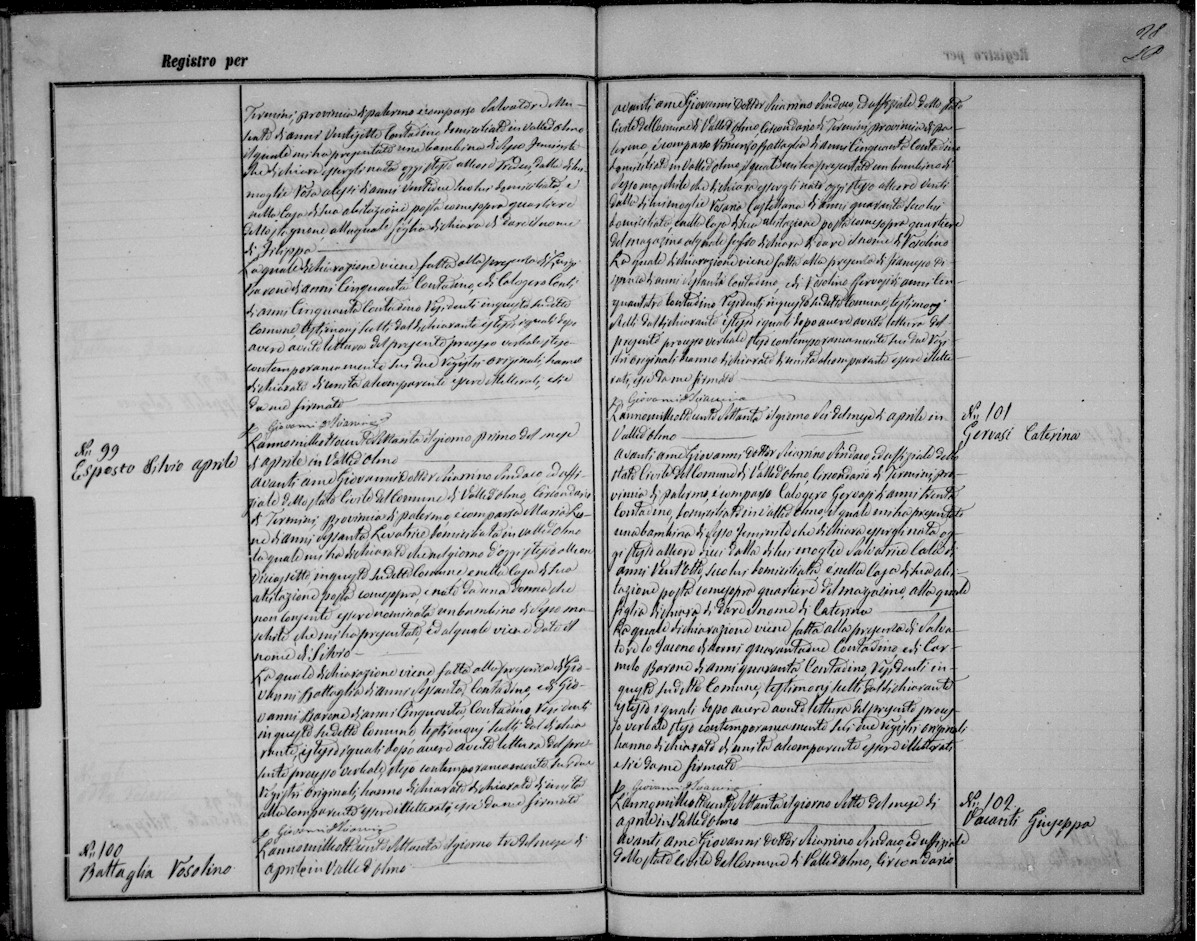 Registro per
Termini, provincia di palermo è comparso Salvatore
di anni Ventisette Contadino domiciliato in Valledolmo
il quale mi ha presentato una bambina di sesso feminile
che dichiara essergli nata oggi stesso alle ore Tredici dalla di lui
moglie Rosa Alessi di anni Ventidue seco lui domiciliata, e
nella Casa di sua abitazione posta come sopra quartiere
dello alla quale figlia dichiara di dare il nome
di Filippa
La quale dichiarazione viene fatta alla presenza di Luigi
Barone di anni Cinquanta Contadino, e di Calogero Conti
di anni Cinquanta Contadino Residenti in questo sudetto
Comune testimonj scelti dal dichiarante istesso i quali dopo
avere avuto lettura del presente processo verbale steso
contemporaneamente su due registri originali, hanno
dichiarato di unita al comparente essere illetterati, e si è
da me firmato
Giovanni Dr Sciarrino
No 99
Esposto Silvio aprile
L'anno mille ottocento settanta il giorno primo del mese
di aprile in Valledolmo
avanti a me Giovanni Dottor Sciarrino Sindaco ed uffi-
ziale dello stato Civile del Comune di Valledolmo, Circondario
di Termini, provincia di palermo, è comparsa Maria
di anni Sessanta Levatrice domiciliata in Valledolmo
la quale mi ha dichiarato che nel giorno d'oggi stesso alle ore
diciassette in questo sudetto Comune e nella Casa di sua
abitazione posta come sopra, è nato da una donna che
non consente essere nominata un bambino di sesso ma-
schile che mi ha presentato, ed al quale viene dato il
nome di Silvio
La quale dichiarazione viene fatta alla presenza di Gio-
vanni Battaglia di anni Sessanta, Contadino, e di Gio-
vanni Barone di anni Cinquanta, Contadino, Residenti
in questo sudetto Comune testimonj scelti dal dichia-
rante, istesso i quali dopo avere avuto lettura del pre-
sente processo verbale steso contemporaneamente su due
registri originali, hanno dichiarato di unita
alla comparente essere illetterati, e si è da me firmato
Giovanni Dr Sciarrino
No 100
Battaglia Rosolino
L'anno mille ottocento settanta il giorno tre del mese di
aprile in Valledolmo
28
avanti a me Giovanni Dottor Sciarrino Sindaco, ed uffiziale dello stato
Civile del Comune di Valledolmo Circondario di Termini, provincia di pa-
lermo è comparso Battaglia di anni Cinquanta Contadino
domiciliato in Valledolmo, il quale mi ha presentato un bambino di
sesso maschile che dichiara essergli nato oggi stesso alle ore Venti
dalla di lui moglie Rosaria Castellana di anni quaranta seco lui
domiciliata, e nella Casa di sua abitazione posta come sopra quartiere
del magazino al quale figlio dichiara di dare il nome di Rosolino
La quale dichiarazione viene fatta alla presenza di francesco
di anni Sessanta Contadino, e di Rosolino Gervasi di anni Cin-
quantatre Contadino Residenti in questo sudetto Comune, testimonj
scelti dal dichiarante istesso i quali dopo avere avuto lettura del
presente processo verbale steso contemporaneamente su due Regi-
stri originali hanno dichiarato di unita al comparente essere illette-
rati, e si è da me firmato
Giovanni Dr Sciarrino
No 101
Gervasi Caterina
L'anno mille ottocento settanta il giorno Sei del mese di aprile in
Valledolmo
avanti a me Giovanni Dottor Sciarrino Sindaco ed uffiziale dello
stato Civile del Comune di Valledolmo, Circondario di Termini, pro-
vincia di palermo, è comparso Calogero Gervasi di anni Trenta
Contadino, domiciliato in Valledolmo, il quale mi ha presentato
una bambina di sesso feminile che dichiara essergli nata og-
gi stesso alle ore dieci dalla di lui moglie Salvatrice Calà di
anni Ventotto, seco lui domiciliata e nella Casa di sua abi-
tazione posta come sopra quartiere del magazino, alla quale
figlia dichiara di dare il nome di Caterina
La quale dichiarazione viene fatta alla presenza di Salva-
tore lo di anni quarantadue Contadino e di Car-
melo Barone di anni quaranta Contadino, Residenti in
questo sudetto Comune, testimonj scelti dal dichiarante
istesso i quali dopo avere avuto lettura del presente proces-
so verbale steso contemporaneamente su due registri originali
hanno dichiarato di unita al comparente essere illetterati
e si è da me firmato
Giovanni Dr Sciarrino
No 102
Vacanti Giuseppa
L'anno mille ottocento settanta il giorno Sette del mese di
aprile in Valledolmo
avanti a me Giovanni Dottor Sciarrino Sindaco ed uffiziale
dello stato Civile del Comune di Valledolmo, Circondario